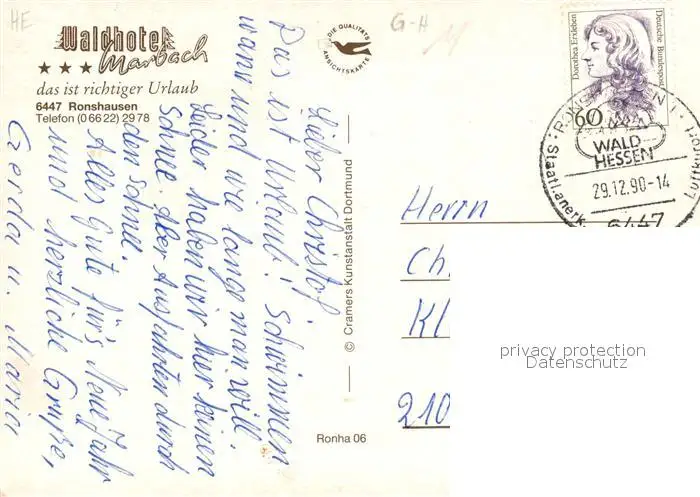 HE
G-H
Waldhotel
Marbach
das ist richtiger Urlaub
6447 Ronshausen
Telefon (0 66 22) 29 78
DIE QUALITÄTS
ANSICHTSKARTE
Lieber Christof,
Das ist Urlaub! Schwimmen
wann und wie lange man will.
Leider haben wir hier keinen
Schnee. Aber Ausfahrten durch
den Schnee.
Alles Gute für's Neue Jahr
und herzliche Grüße,
Gerda u. Maria
© Cramers Kunstanstalt Dortmund
Ronha 06
Dorothea Erxleben
Deutsche Bundespost
60
WALD
HESSEN
29.12.90-14
Staatl. anerk.
Luftkur
6447
Herrn
Ch.
Kl
210
privacy protection
Datenschutz